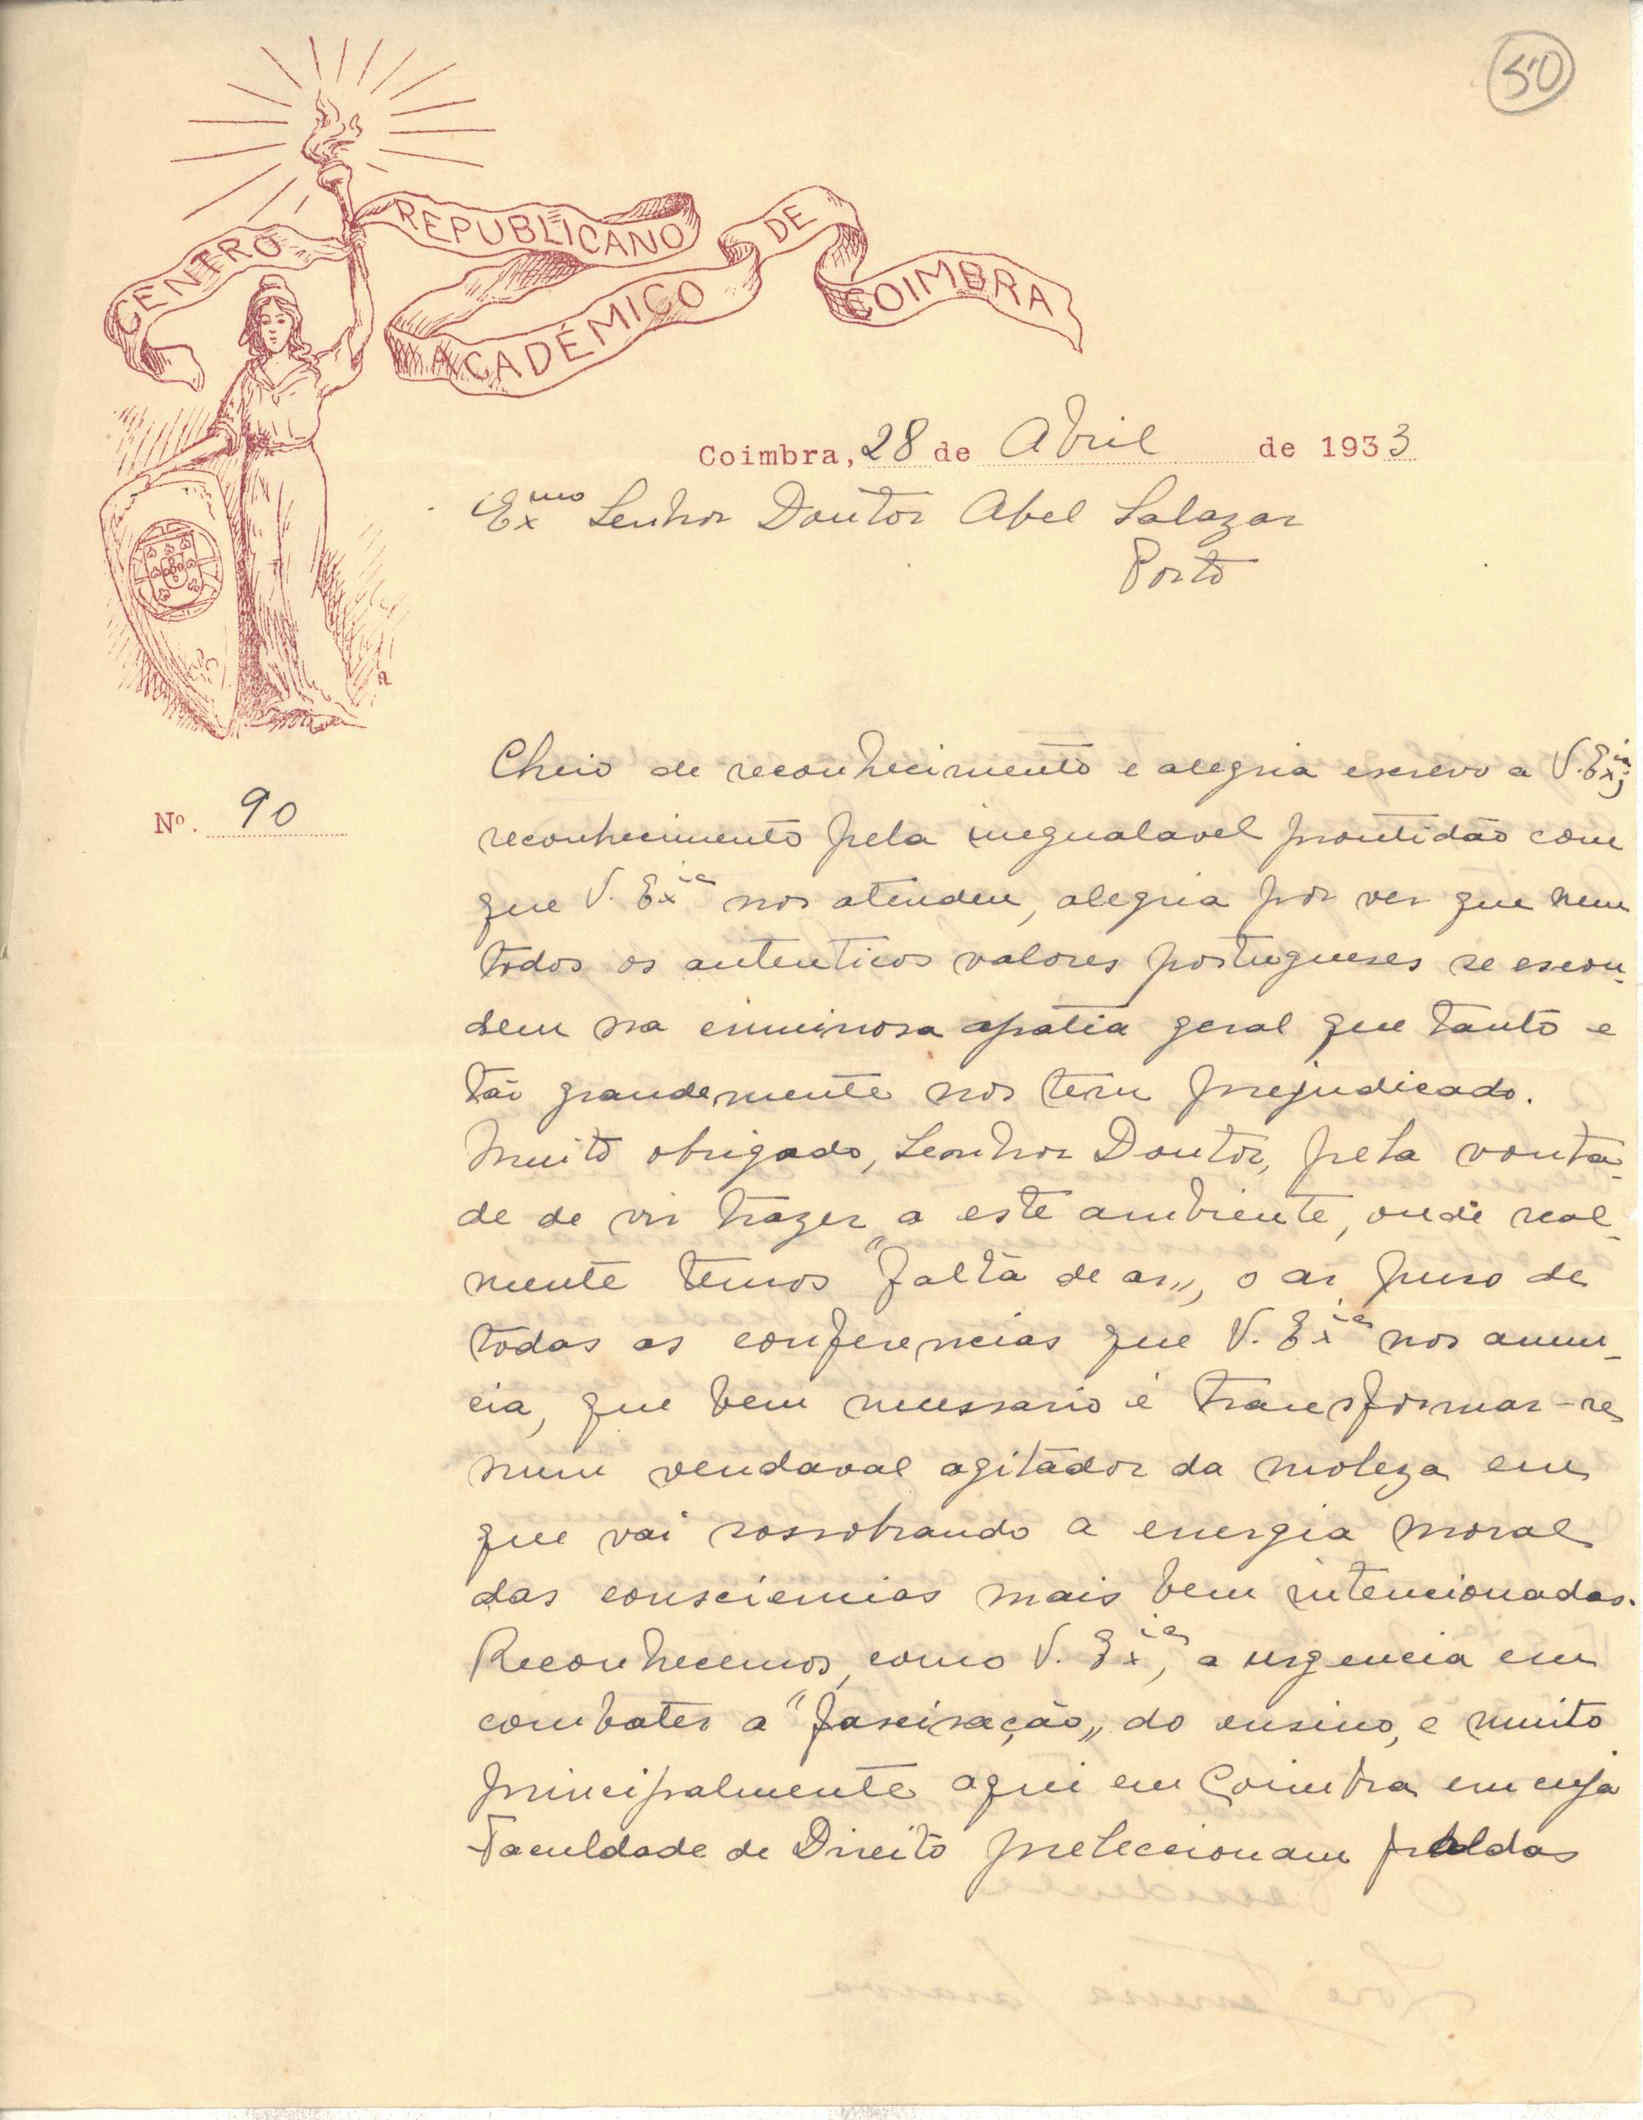 50
CENTRO REPUBLICANO ACADÉMICO DE COIMBRA
Coimbra, 28 de Abril de 1933
Exmo Senhor Doutor Abel Salazar
Porto
Nº. 90
Cheio de reconhecimento e alegria escrevo a V. Exia;
reconhecimento pela inegualavel prontidão com
que V. Exia nos atendeu, alegria por ver que nem
todos os autenticos valores portugueses se escon-
dem na criminosa apatia geral que tanto e
tão grandemente nos tem prejudicado.
Muito obrigado, Senhor Doutor, pela vonta-
de de vir trazer a este ambiente, onde real-
mente temos "falta de ar", o ar puro de
todas as conferencias que V. Exia nos anun-
cia, que bem necessario é transformar-se
num vendaval agitador da moleza em
que vai sossobrando a energia moral
das consciencias mais bem intencionadas.
Reconhecemos, como V. Exia, a urgencia em
combater a "fascisação" do ensino, e muito
principalmente aqui em Coimbra em cuja
Faculdade de Direito preleccionam